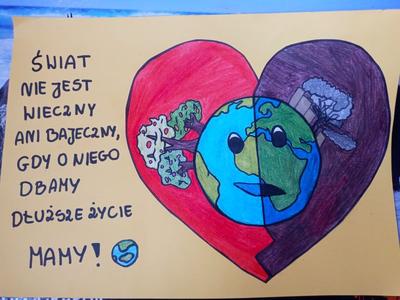 ŚWIAT
NIE JEST
WIECZNY
ANI BAJECZNY,
GDY O NIEGO
DBAMY
DŁUŻSZE ŻYCIE
MAMY!